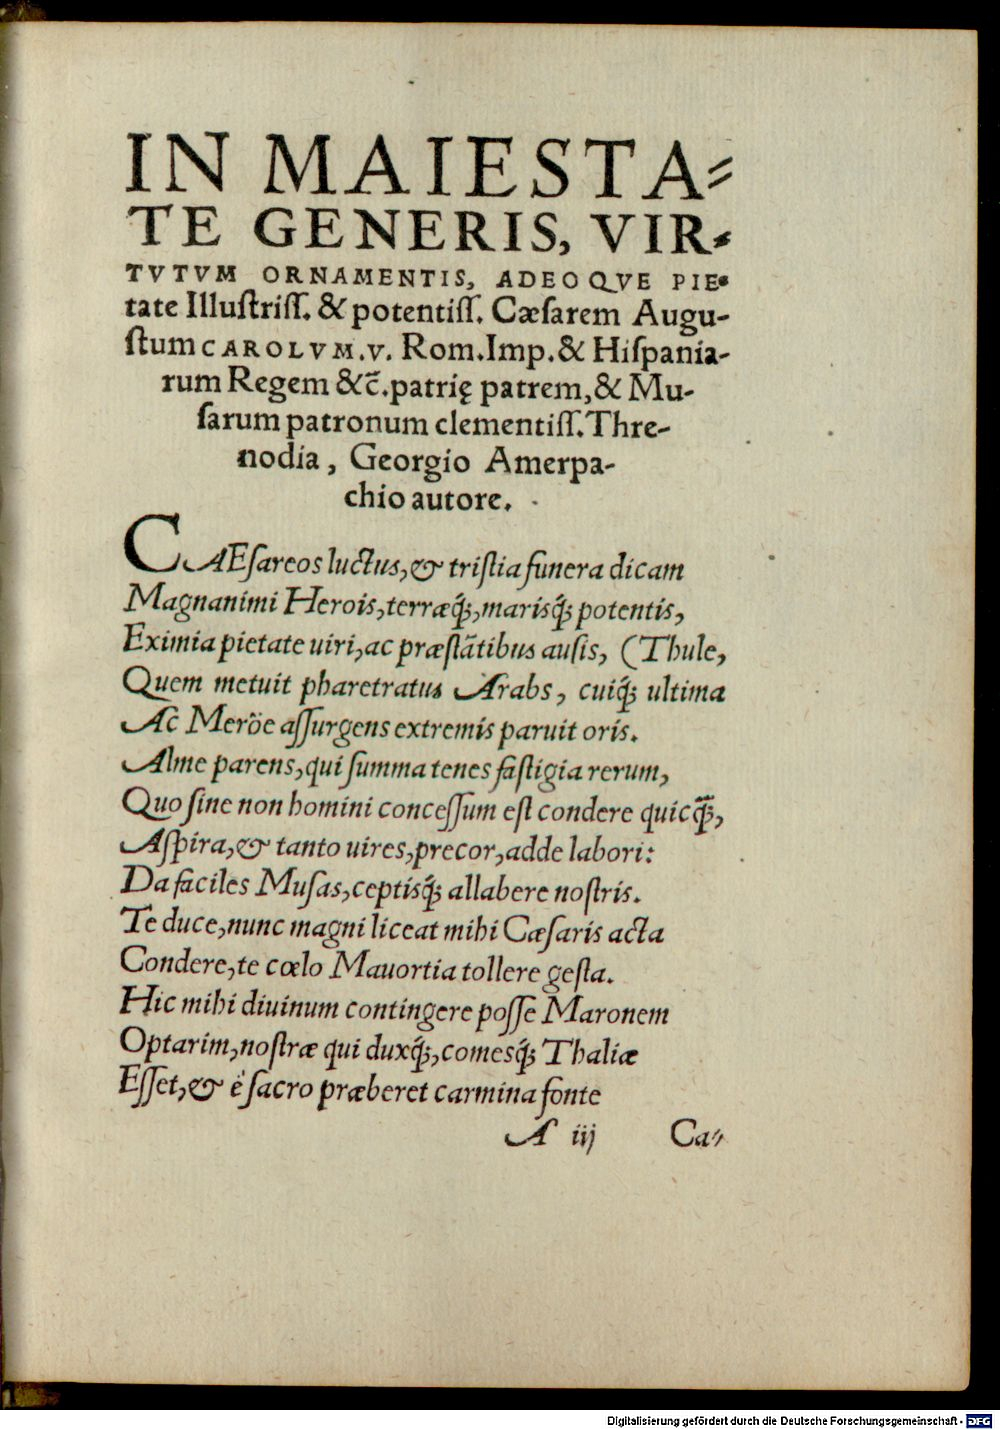 IN MAIESTA⸗
TE GENERIS, VIR⸗
TVTVM ORNAMENTIS, ADEOQVE PIE⸗
tate Illuſtriſſ. & potentiſſ. Cæſarem Augu-
ſtum CAROLVM.V. Rom.Imp.& Hiſpania-
rum Regem &c̄.patrię patrem,& Mu-
ſarum patronum clementiſſ.Thre-
nodia, Georgio Amerpa-
chio autore.
CAEſareos luctus,& triſtia funera dicam
Magnanimi Herois,terræq́;,marisq́; potentis,
Eximia pietate uiri,ac præſtātibus auſis, (Thule,
Quem metuit pharetratus Arabs, cuiq́; ultima
Ac̄ Meröe aſſurgens extremis paruit oris.
Alme parens,qui ſumma tenes faſtigia rerum,
Quo ſine non homini conceſſum eſt condere quicq̃;,
Aſpira,& tanto uires,precor,adde labori:
Da faciles Muſas,ceptisq́; allabere noſtris.
Te duce,nunc magni liceat mihi Cæſaris acta
Condere,te cœlo Mauortia tollere geſta.
Hic mihi diuinum contingere poſſe Maronem
Optarim,noſtræ qui duxq́;,comesq́; Thaliæ
Eſſet,& è ſacro præberet carmina fonte
A iij Ca⸗
Digitalisierung gefördert durch die Deutsche Forschungsgemeinschaft - DFG